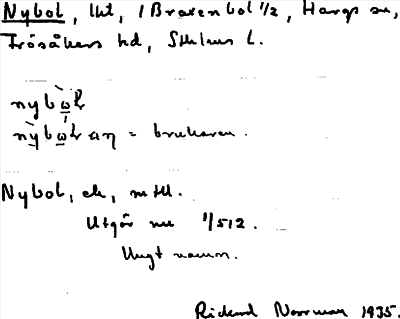 Nybol, lht, 1 Braxenbol 1/2, Hargs sn,
Frösåkers hd, Sthlms l.
nybωḷ
nybωḷ aη = brukaren.
Nybol, ek, mtl.
Utgör nu 1/512.
Ungt namn.
Rickard Norrman 1935.